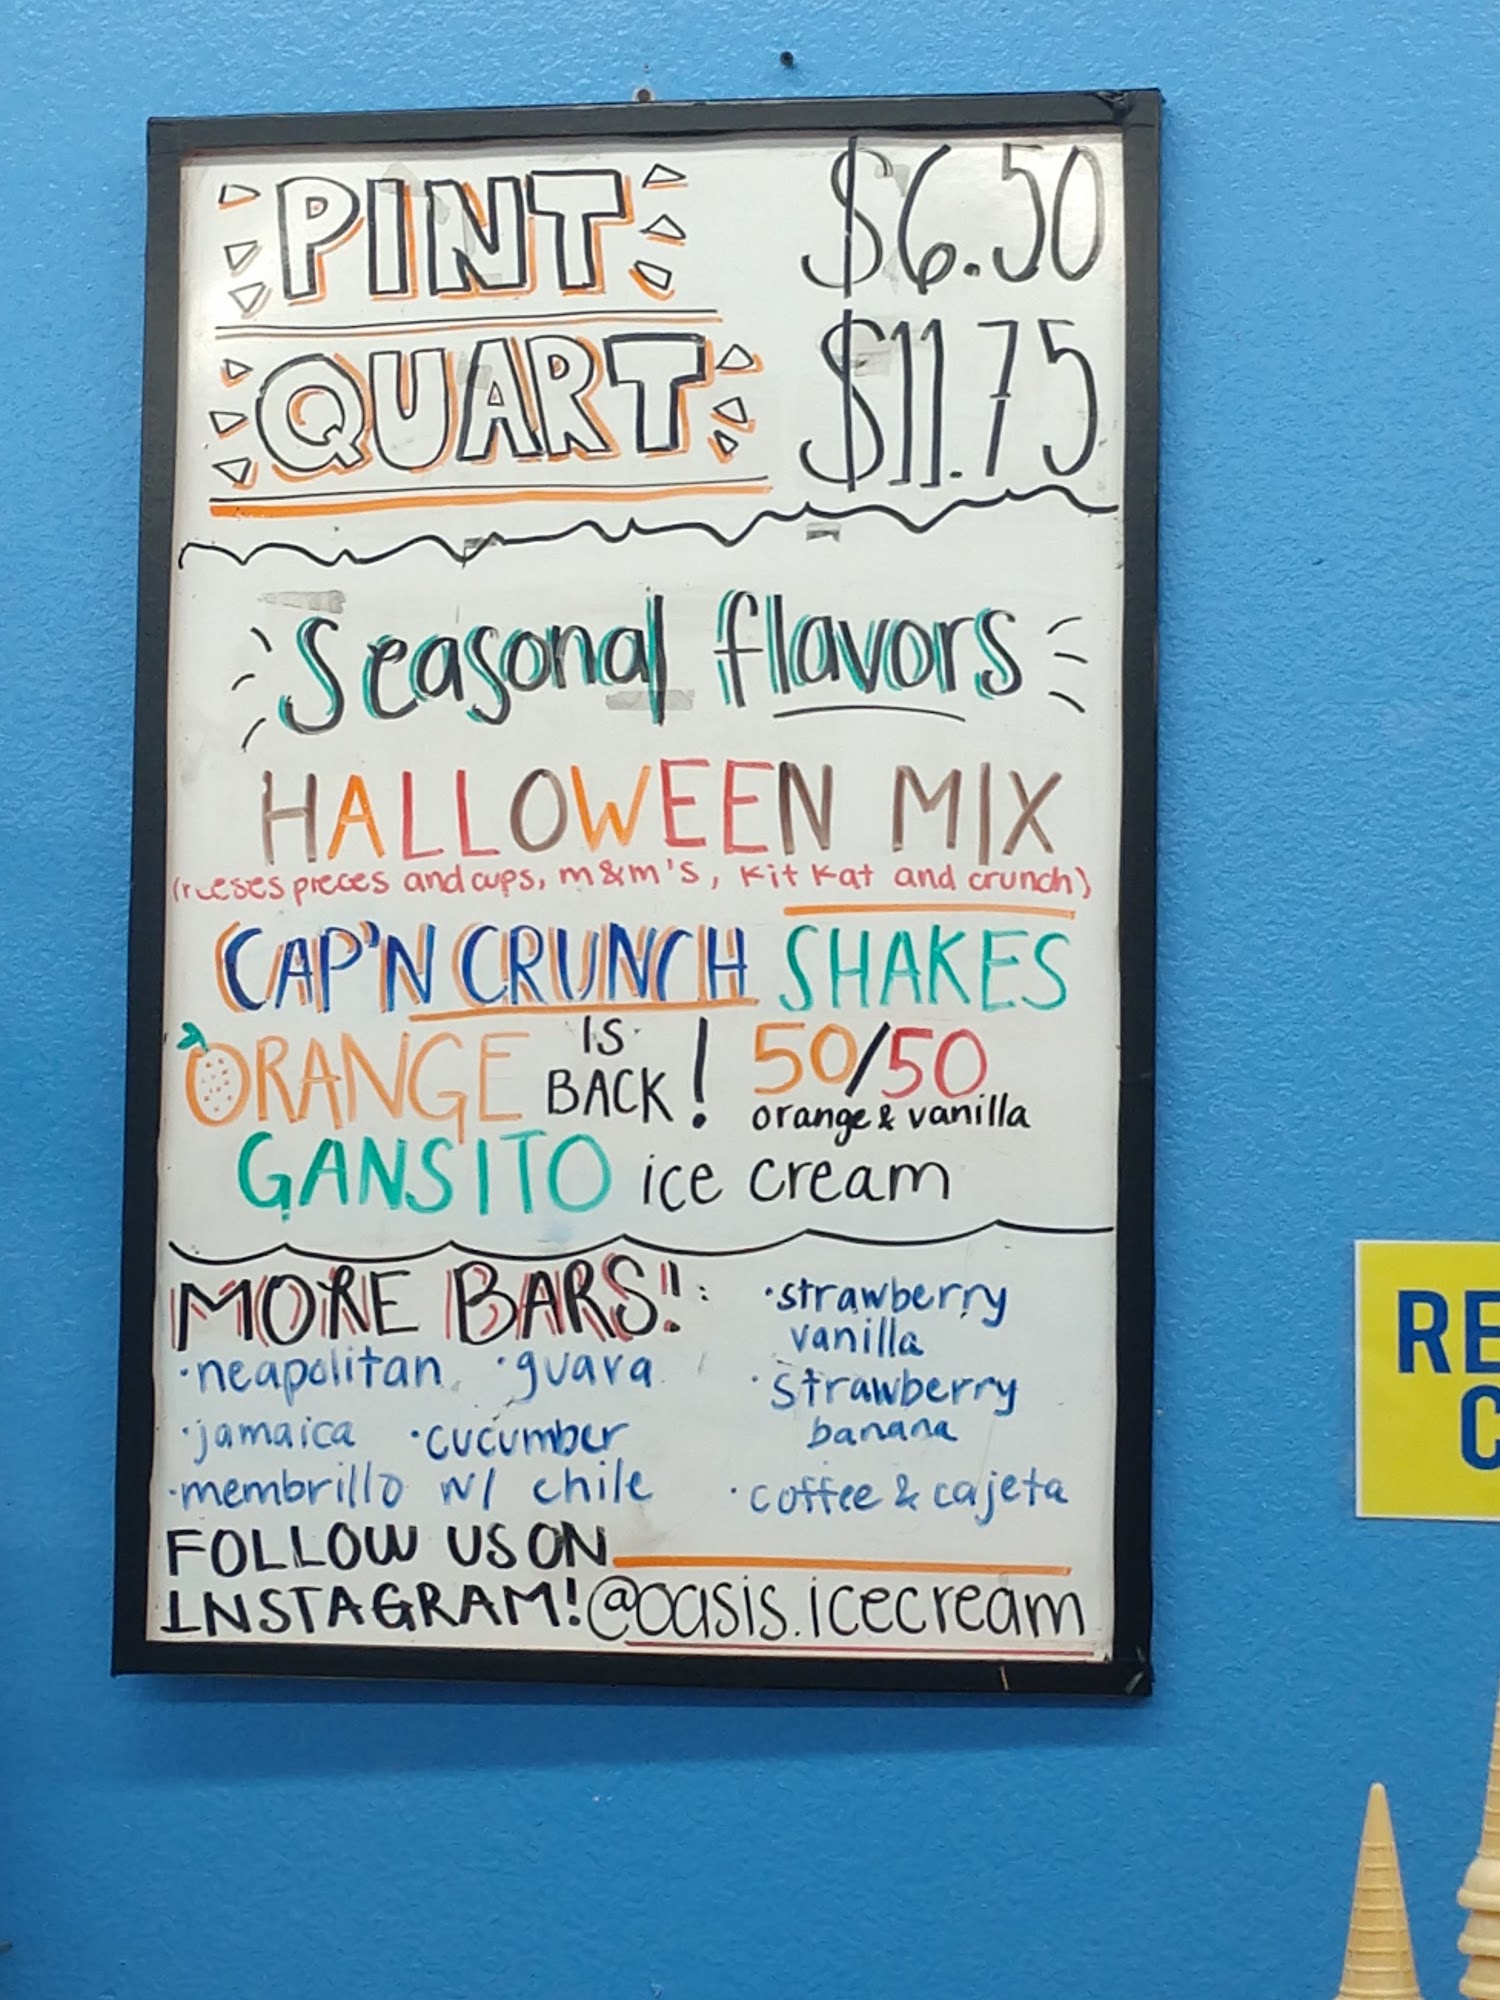 PINT $6.50
QUART $11.75
Seasonal flavors
HALLOWEEN MIX
(reeses pieces and cups, m&m's, Kit Kat and crunch)
CAP'N CRUNCH SHAKES
ORANGE IS BACK! 50/50
orange & vanilla
GANSITO ice cream
MORE BARS!:
·neapolitan ·guava
·jamaica ·cucumber
·membrillo w/ chile
·strawberry
vanilla
·strawberry
banana
·coffee & cajeta
FOLLOW US ON
INSTAGRAM! @oasis.icecream
RE
C